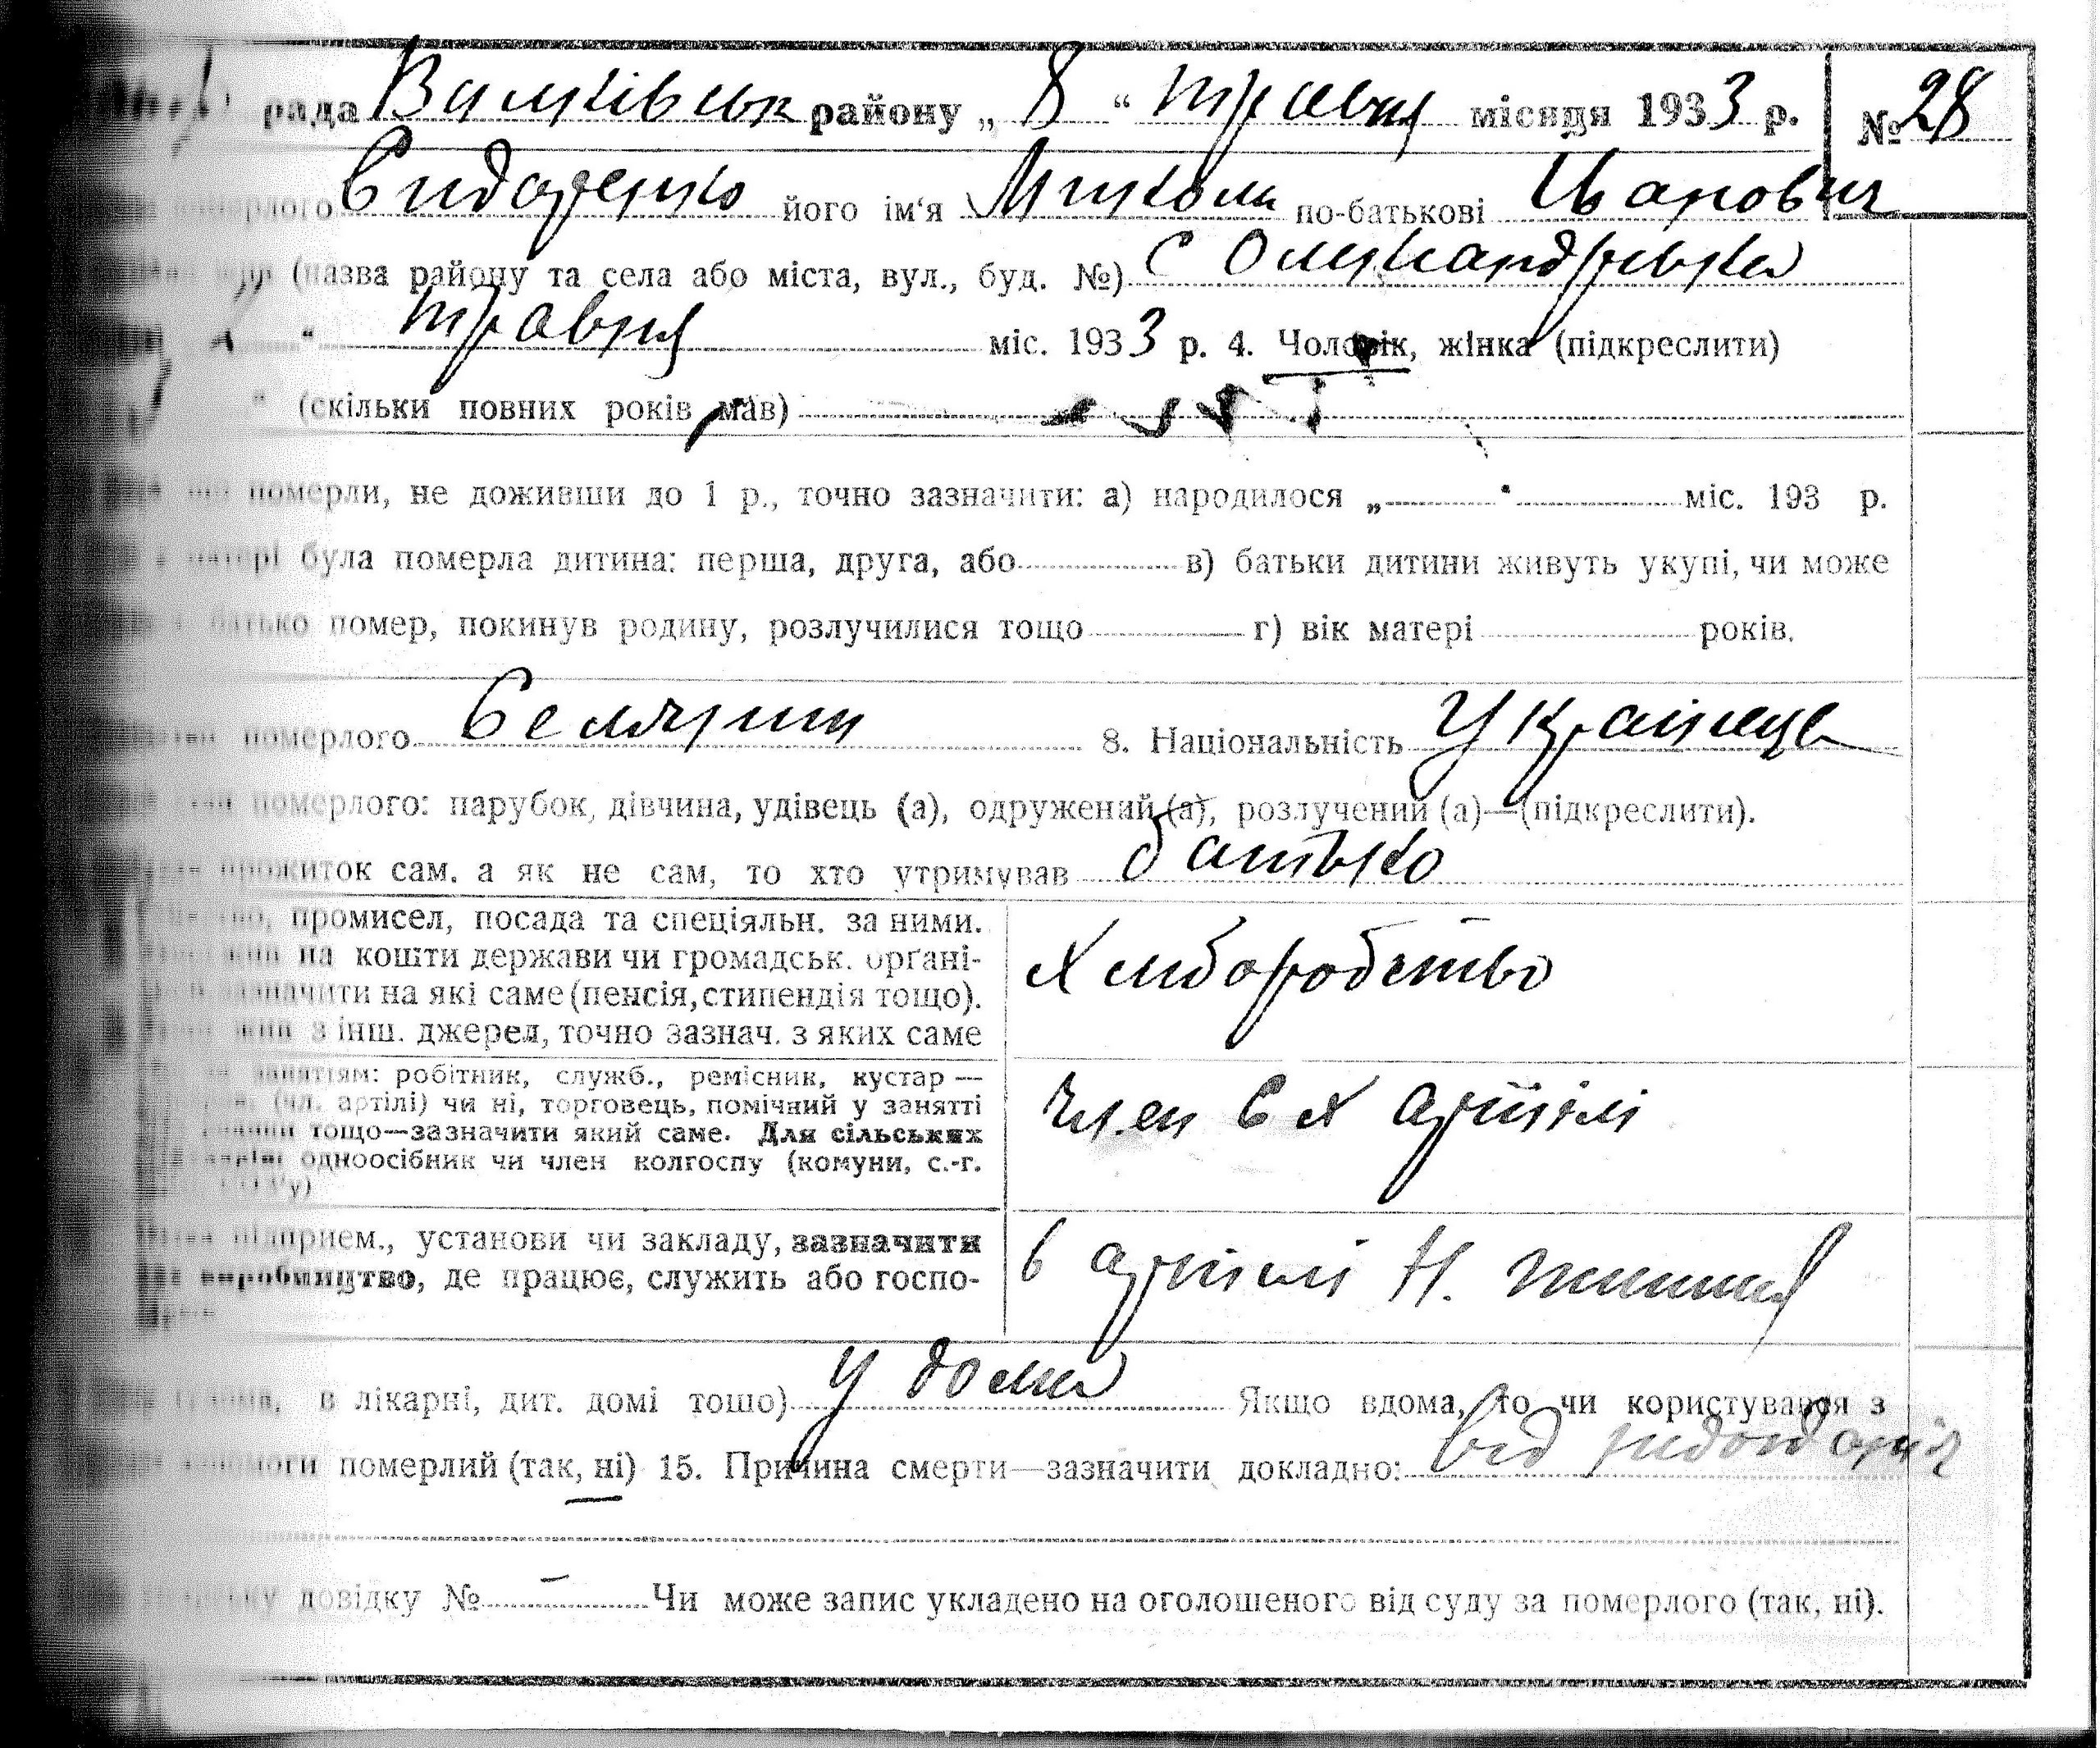 рада Валківськ району „ 8 “ травня місяця 1933 р. № 28
Сидоренко його ім‘я Микола по-батькові Іванович
(назва району та села або міста, вул., буд. №) с Олександрівка
“ травня міс. 1933 р. 4. Чоловік, жінка (підкреслити)
“ (скільки повних років мав)
померли, не доживши до 1 р., точно зазначити: а) народилося „ “ міс. 193 р.
була померла дитина: перша, друга, або в) батьки дитини живуть укупі, чи може
батько помер, покинув родину, розлучилися тощо г) вік матері років.
померлого Селянин 8. Національність Українець
померлого: парубок, дівчина, удівець (а), одружений (а), розлучений (а)—(підкреслити).
прожиток сам, а як не сам, то хто утримував батько
промисел, посада та спеціяльн. за ними.
на кошти держави чи громадськ. орґані-
зазначити на які саме (пенсія, стипендія тощо).
з інш. джерел, точно зазнач. з яких саме
Хліборобство
занятіям: робітник, служб., ремісник, кустар —
(чл. артілі) чи ні, торговець, помічний у занятті
тощо—зазначити який саме. Для сільських
одноосібник чи член колгоспу (комуни, с.-г.
Член С Х Артілі
підприєм., установи чи закладу, зазначити
виробництво, де працює, служить або госпо-
в артілі Н.
в лікарні, дит. домі тощо) у дома Якщо вдома, то чи користувався з
допомоги померлий (так, ні) 15. Причина смерти—зазначити докладно: від недоїданія
довідку № – Чи може запис укладено на оголошеного від суду за померлого (так, ні).